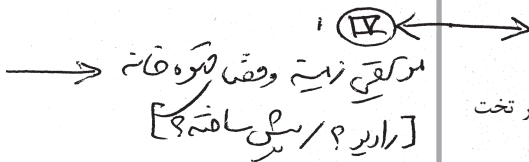 TV
موسیقی زمینه وفضا قهوه خانه
[رادیو؟ / پیش ساخته؟]
ر تخت